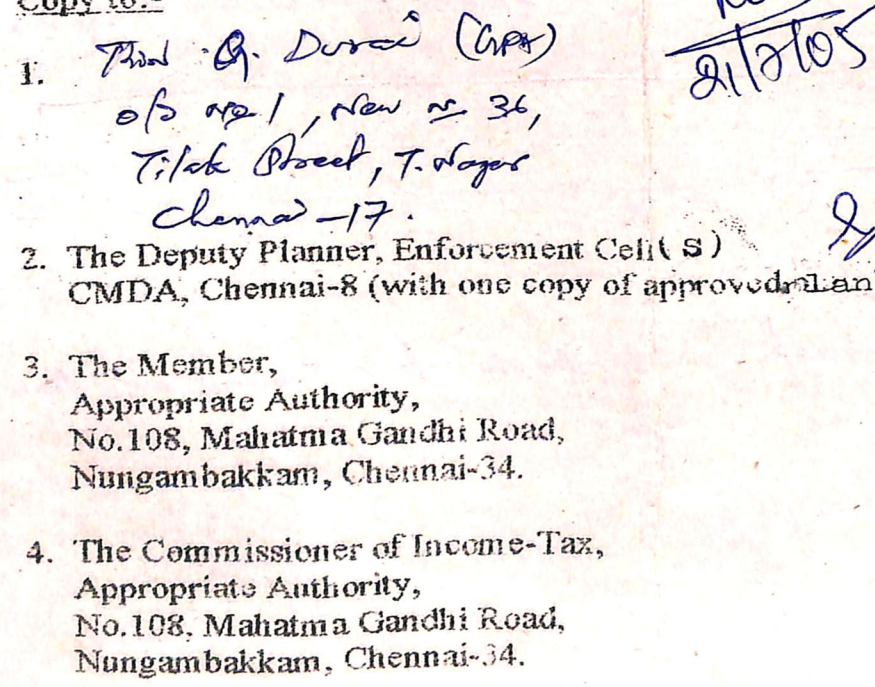 Copy to:-
1. Thiru G. Durai (GPA)
o/o No 1, New No 36,
Tilak Street, T. Nagar
Chennai -17.
21/7/05
2. The Deputy Planner, Enforcement Cell( S )
CMDA, Chennai-8 (with one copy of approved plan
3. The Member,
Appropriate Authority,
No.108, Mahatma Gandhi Road,
Nungambakkam, Chennai-34.
4. The Commissioner of Income-Tax,
Appropriate Authority,
No.108, Mahatma Gandhi Road,
Nungambakkam, Chennai-34.